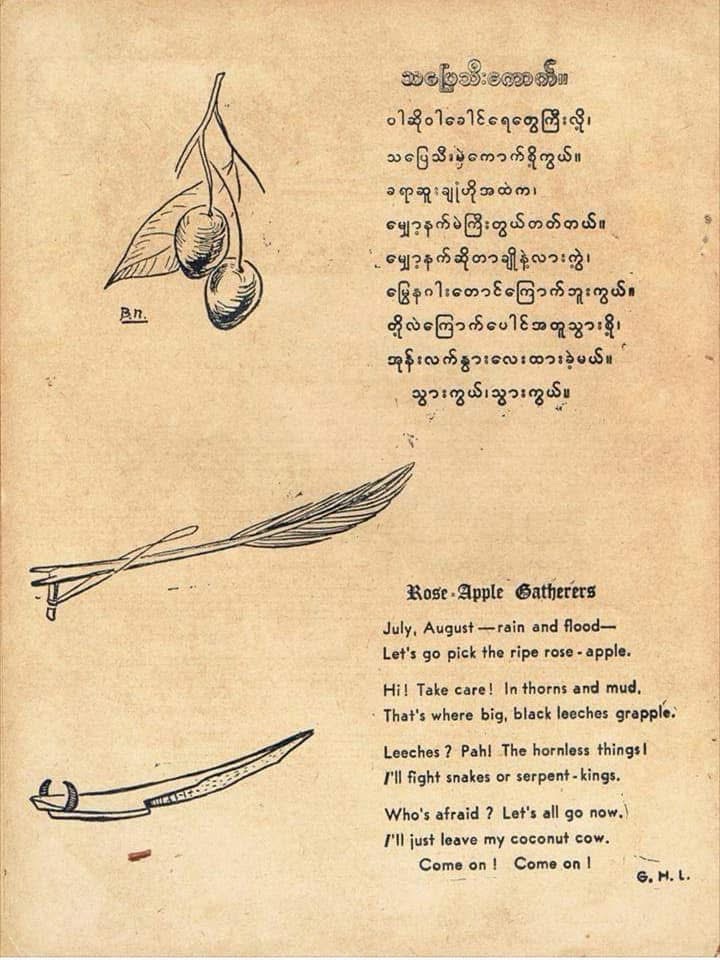 သပြေသီးကောက်။
ဝါဆိုဝါခေါင်ရေတွေကြီးလို့၊
သပြေသီးမှဲ့ကောက်စို့ကွယ်။
ခရာဆူးချုံဟိုအထဲက၊
မျှော့နက်မဲကြီးတွယ်တတ်တယ်။
မျှော့နက်ဆိုတာချိုနဲ့လားကွဲ့၊
မြွေနဂါးတောင်ကြောက်ဘူးကွယ်။
တို့လဲကြောက်ပေါင်အတူသွားစို့၊
အုန်းလက်နွားလေးထားခဲ့မယ်။
သွားကွယ်၊သွားကွယ်။
B.N.
Rose-Apple Gatherers
July, August — rain and flood —
Let's go pick the ripe rose-apple.
Hi! Take care! In thorns and mud,
That's where big, black leeches grapple.
Leeches? Pah! The hornless things!
I'll fight snakes or serpent-kings.
Who's afraid? Let's all go now.
I'll just leave my coconut cow.
Come on! Come on!
G. H. L.